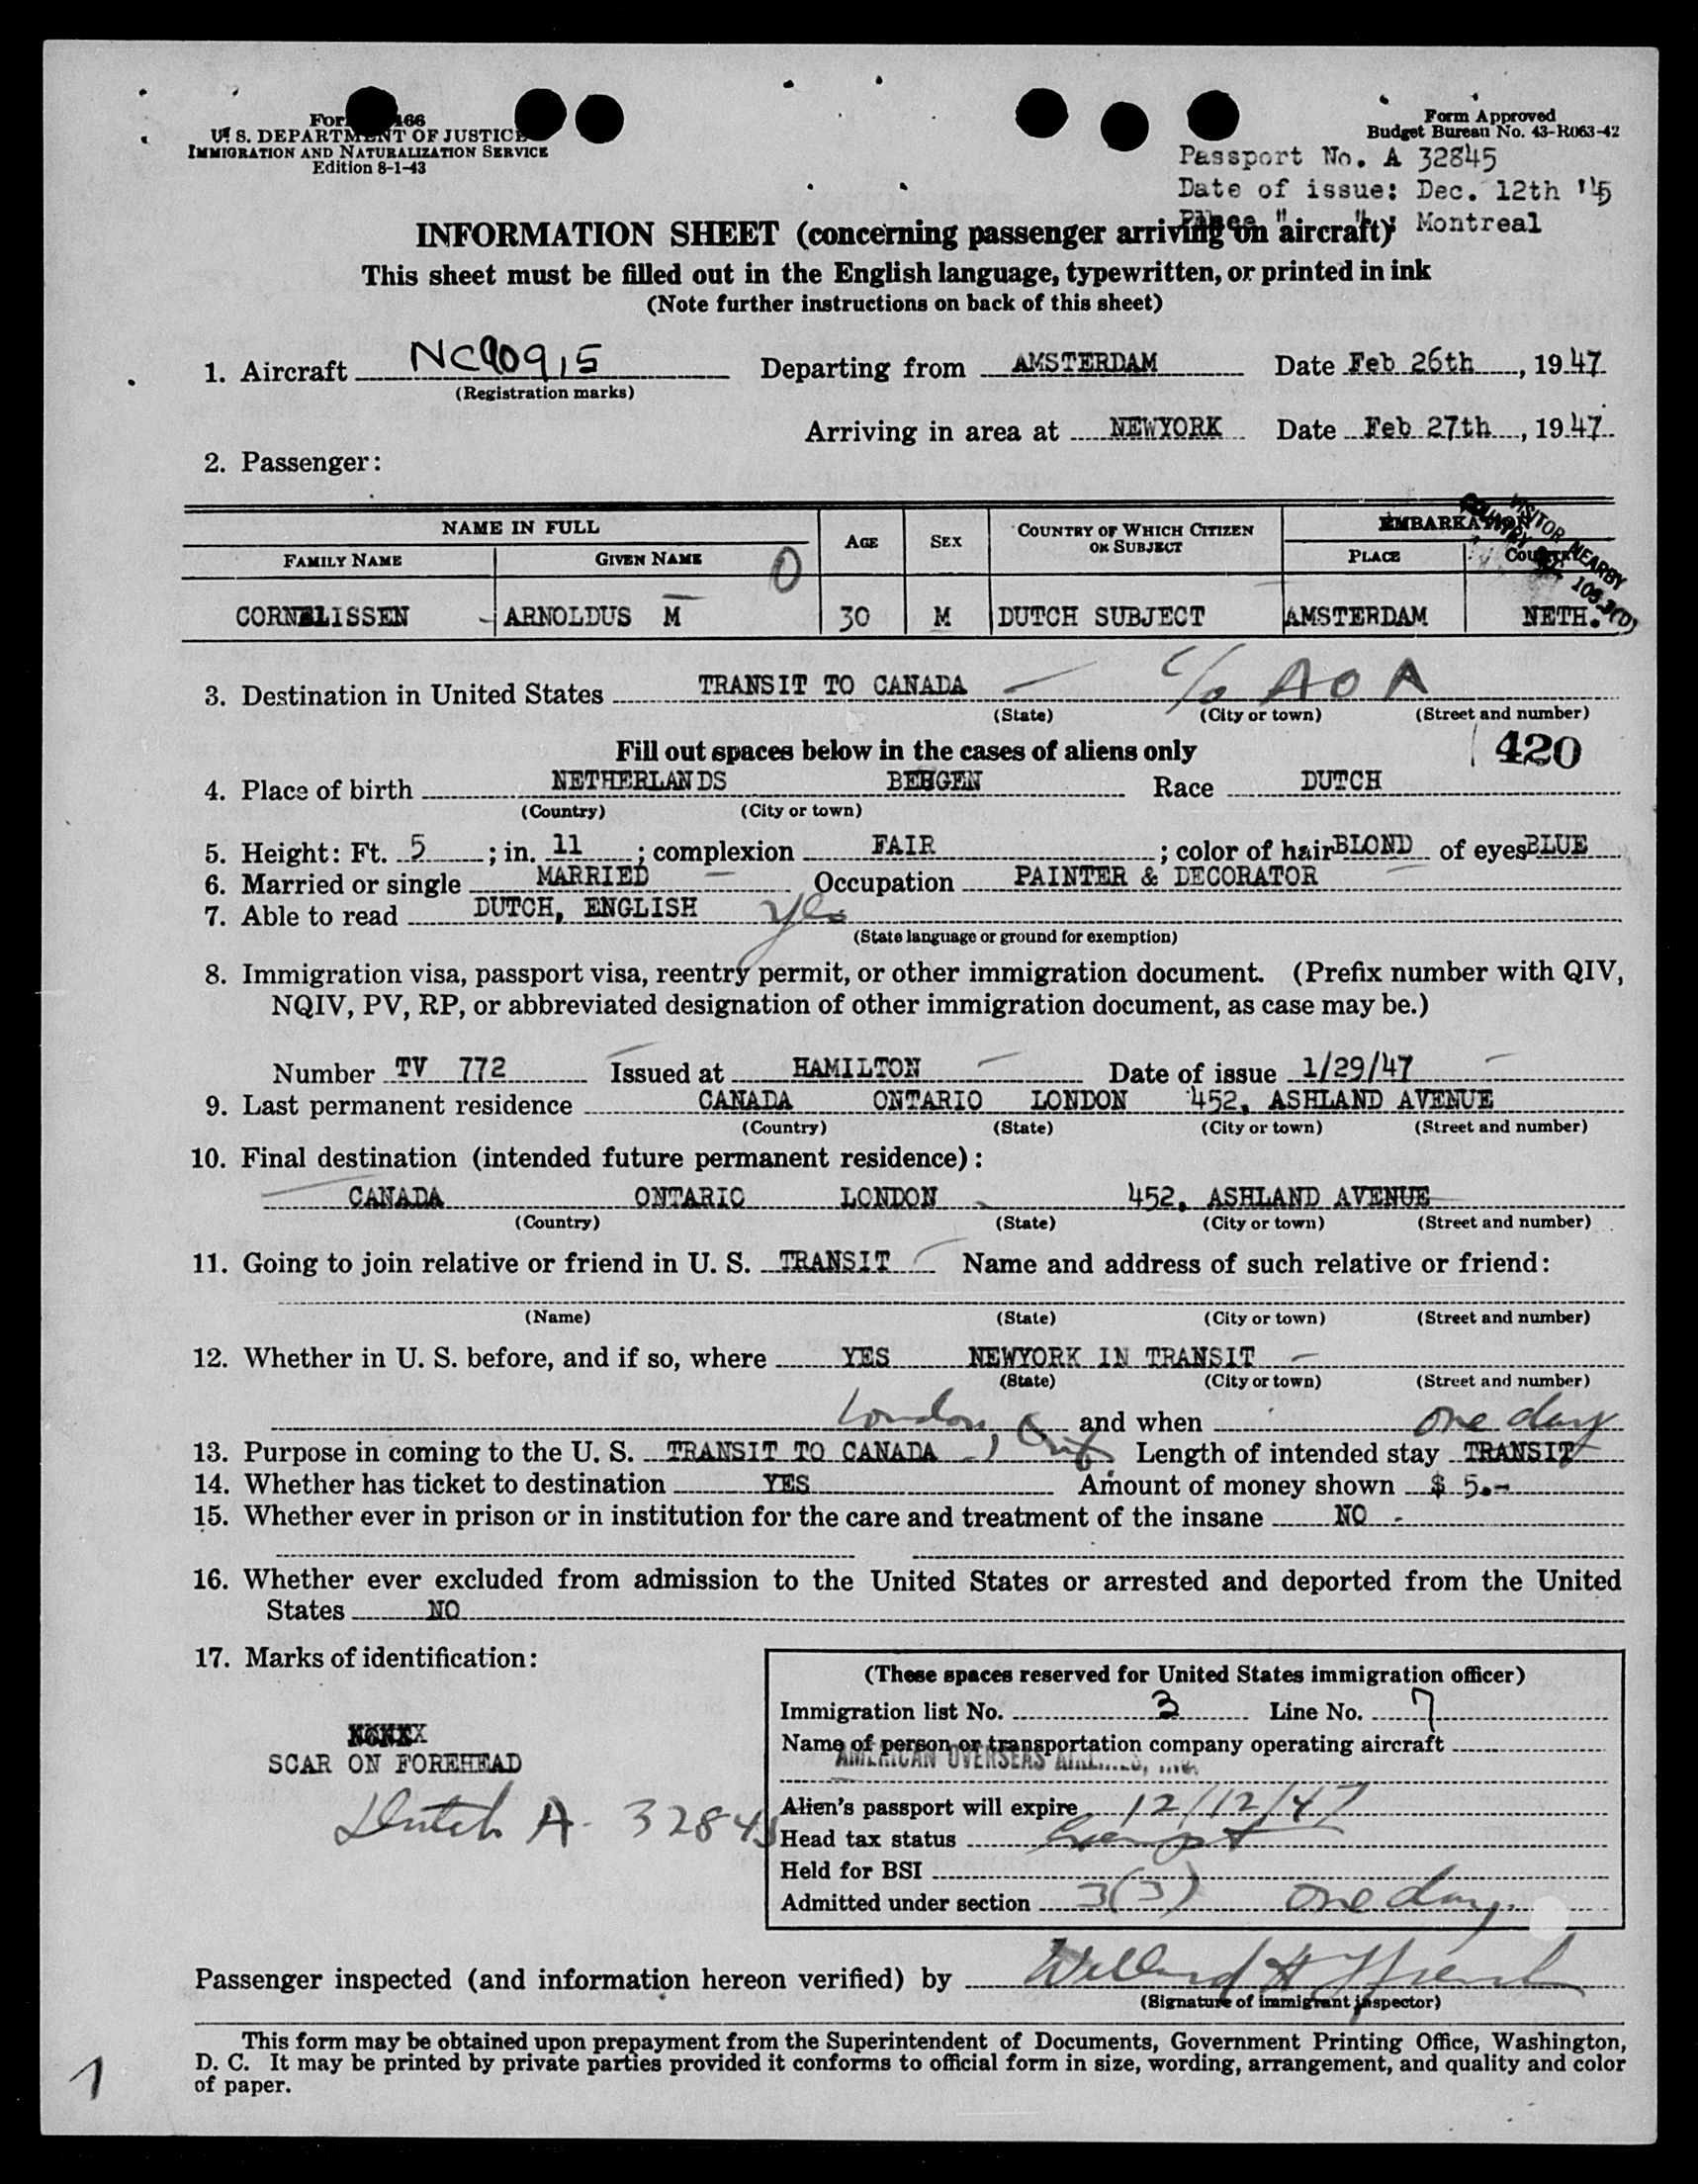 Form 466
U. S. DEPARTMENT OF JUSTICE
IMMIGRATION AND NATURALIZATION SERVICE
Edition 8-1-43
Form Approved
Budget Bureau No. 43-R063-42
Passport No. A 32845
Date of issue: Dec. 12th '45
Place " ": Montreal
INFORMATION SHEET (concerning passenger arriving on aircraft)
This sheet must be filled out in the English language, typewritten, or printed in ink
(Note further instructions on back of this sheet)
1. Aircraft NC90915 Departing from AMSTERDAM Date Feb 26th, 1947.
(Registration marks)
Arriving in area at NEWYORK Date Feb 27th, 1947.
2. Passenger:
NAME IN FULL AGE SEX COUNTRY OF WHICH CITIZEN OR SUBJECT EMBARKATION
FAMILY NAME GIVEN NAME PLACE COUNTRY
0
VISITOR NEARBY
COUNTRY
CORNELISSEN ARNOLDUS M 30 M DUTCH SUBJECT AMSTERDAM NETH.
3. Destination in United States TRANSIT TO CANADA c/o AOA
(State) (City or town) (Street and number)
Fill out spaces below in the cases of aliens only 420
4. Place of birth NETHERLANDS BERGEN Race DUTCH
(Country) (City or town)
5. Height: Ft. 5; in. 11; complexion FAIR; color of hair BLOND of eyes BLUE
6. Married or single MARRIED Occupation PAINTER & DECORATOR
7. Able to read DUTCH, ENGLISH yes
(State language or ground for exemption)
8. Immigration visa, passport visa, reentry permit, or other immigration document. (Prefix number with QIV,
NQIV, PV, RP, or abbreviated designation of other immigration document, as case may be.)
Number TV 772 Issued at HAMILTON Date of issue 1/29/47
9. Last permanent residence CANADA ONTARIO LONDON 452, ASHLAND AVENUE
(Country) (State) (City or town) (Street and number)
10. Final destination (intended future permanent residence):
CANADA ONTARIO LONDON 452, ASHLAND AVENUE
(Country) (State) (City or town) (Street and number)
11. Going to join relative or friend in U. S. TRANSIT Name and address of such relative or friend:
(Name) (State) (City or town) (Street and number)
12. Whether in U. S. before, and if so, where YES NEWYORK IN TRANSIT
(State) (City or town) (Street and number)
London, Ont. and when one day
13. Purpose in coming to the U. S. TRANSIT TO CANADA Length of intended stay TRANSIT
14. Whether has ticket to destination YES Amount of money shown $ 5.-
15. Whether ever in prison or in institution for the care and treatment of the insane NO -
16. Whether ever excluded from admission to the United States or arrested and deported from the United
States NO
17. Marks of identification:
SCAR ON FOREHEAD
Dutch A- 32845
(These spaces reserved for United States immigration officer)
Immigration list No. 3 Line No. 7
Name of person or transportation company operating aircraft
AMERICAN OVERSEAS AIRLINES, INC.
Alien's passport will expire 12/12/47
Head tax status Exempt
Held for BSI
Admitted under section 3(3) one day.
Passenger inspected (and information hereon verified) by Willard H French
(Signature of immigrant inspector)
This form may be obtained upon prepayment from the Superintendent of Documents, Government Printing Office, Washington,
D. C. It may be printed by private parties provided it conforms to official form in size, wording, arrangement, and quality and color
of paper.
1